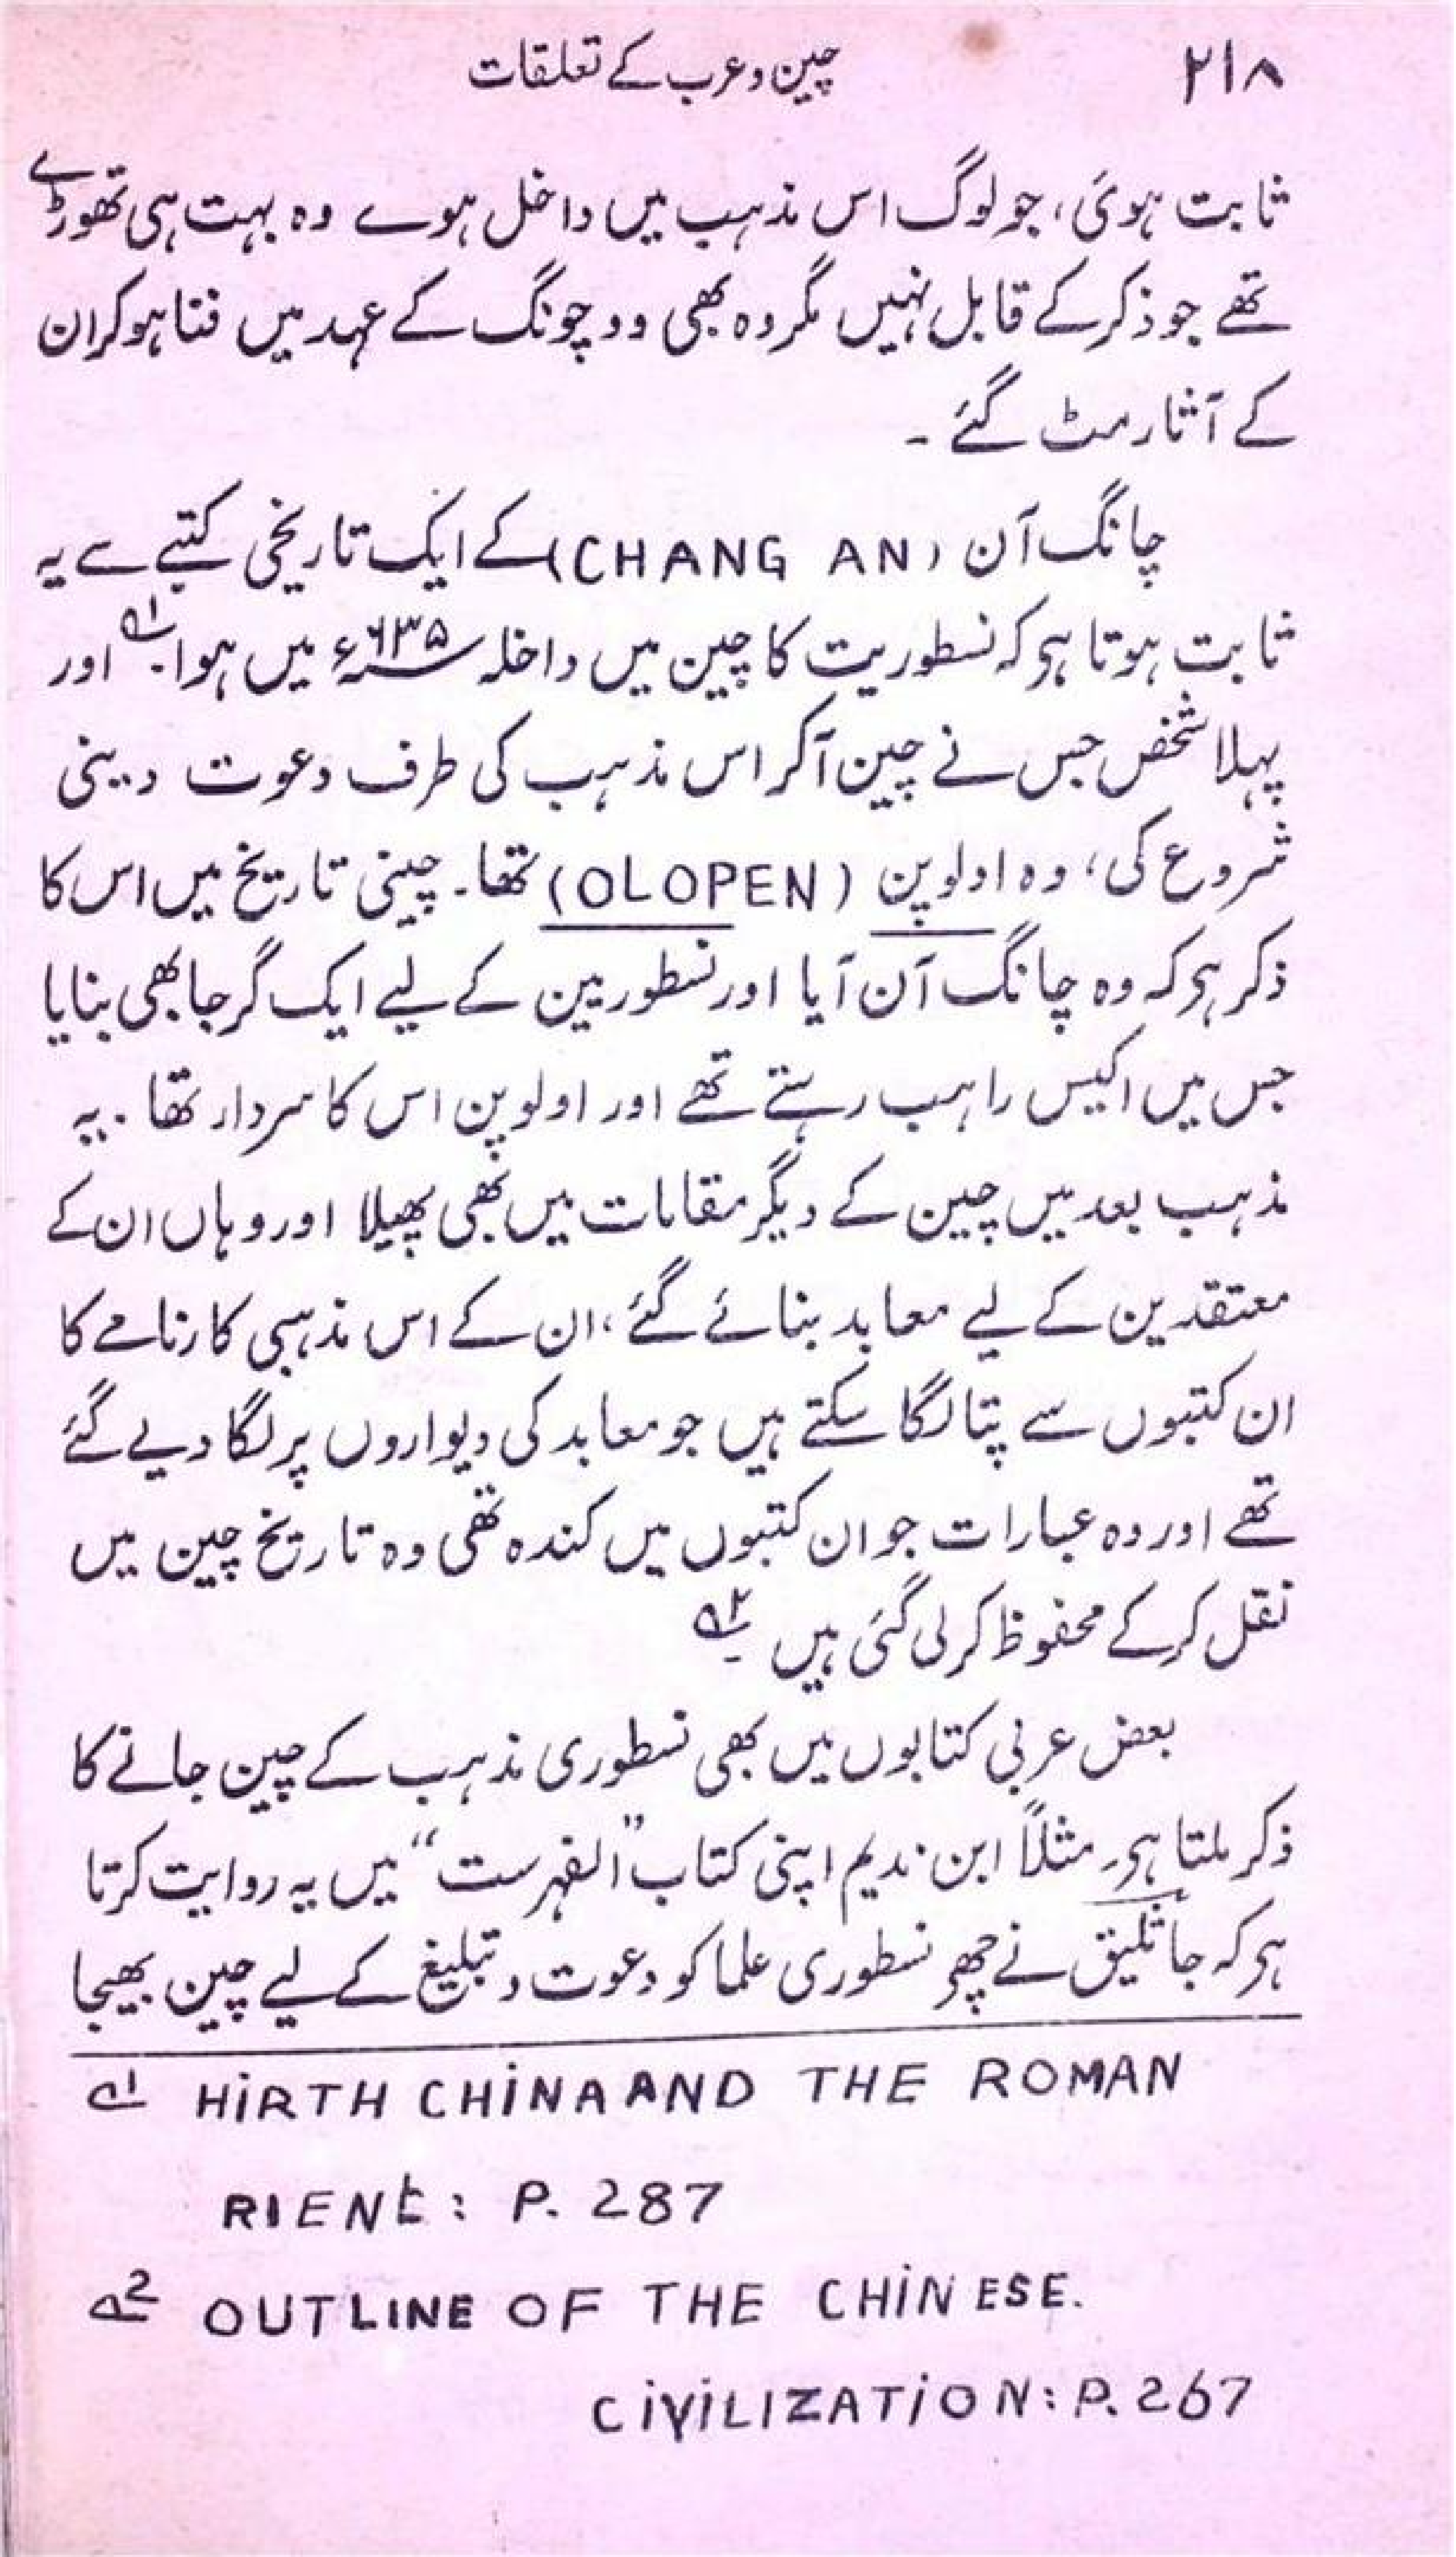 ۲۱۸
چین و عرب کے تعلقات
ثابت ہوئی، جو لوگ اس مذہب میں داخل ہوے وہ بہت ہی تھوڑے
تھے جو ذکر کے قابل نہیں مگر وہ بھی وو چونگ کے عہد میں فنا ہوکر ان
کے آثار مٹ گئے ۔
چانگ آن (CHANG AN) کے ایک تاریخی کتبے سے یہ
ثابت ہوتا ہو کہ نسطوریت کا چین میں داخلہ ۶۳۵ء میں ہوا۔ ؎۱ اور
پہلا شخص جس نے چین آکر اس مذہب کی طرف دعوت دینی
شروع کی، وہ اولوپن (OLOPEN) تھا۔ چینی تاریخ میں اس کا
ذکر ہو کہ وہ چانگ آن آیا اور نسطورین کے لیے ایک گرجا بھی بنایا
جس میں اکیس راہب رہتے تھے اور اولوپن اس کا سردار تھا۔ یہ
مذہب بعد میں چین کے دیگر مقامات میں بھی پھیلا اور وہاں ان کے
معتقدین کے لیے معابد بنائے گئے، ان کے اس مذہبی کارنامے کا
ان کتبوں سے پتا لگا سکتے ہیں جو معابد کی دیواروں پر لگا دیے گئے
تھے اور وہ عبارات جو ان کتبوں میں کندہ تھی وہ تاریخ چین میں
نقل کرکے محفوظ کرلی گئی ہیں ۔ ؎۲
بعض عربی کتابوں میں بھی نسطوری مذہب کے چین جانے کا
ذکر ملتا ہو۔ مثلاً ابن ندیم اپنی کتاب "الفہرست" میں یہ روایت کرتا
ہو کہ جاثلیق نے چھ نسطوری علما کو دعوت و تبلیغ کے لیے چین بھیجا
؎1 HIRTH CHINA AND THE ROMAN
RIENT : P. 287
؎2 OUTLINE OF THE CHINESE.
CIVILIZATION : P. 267